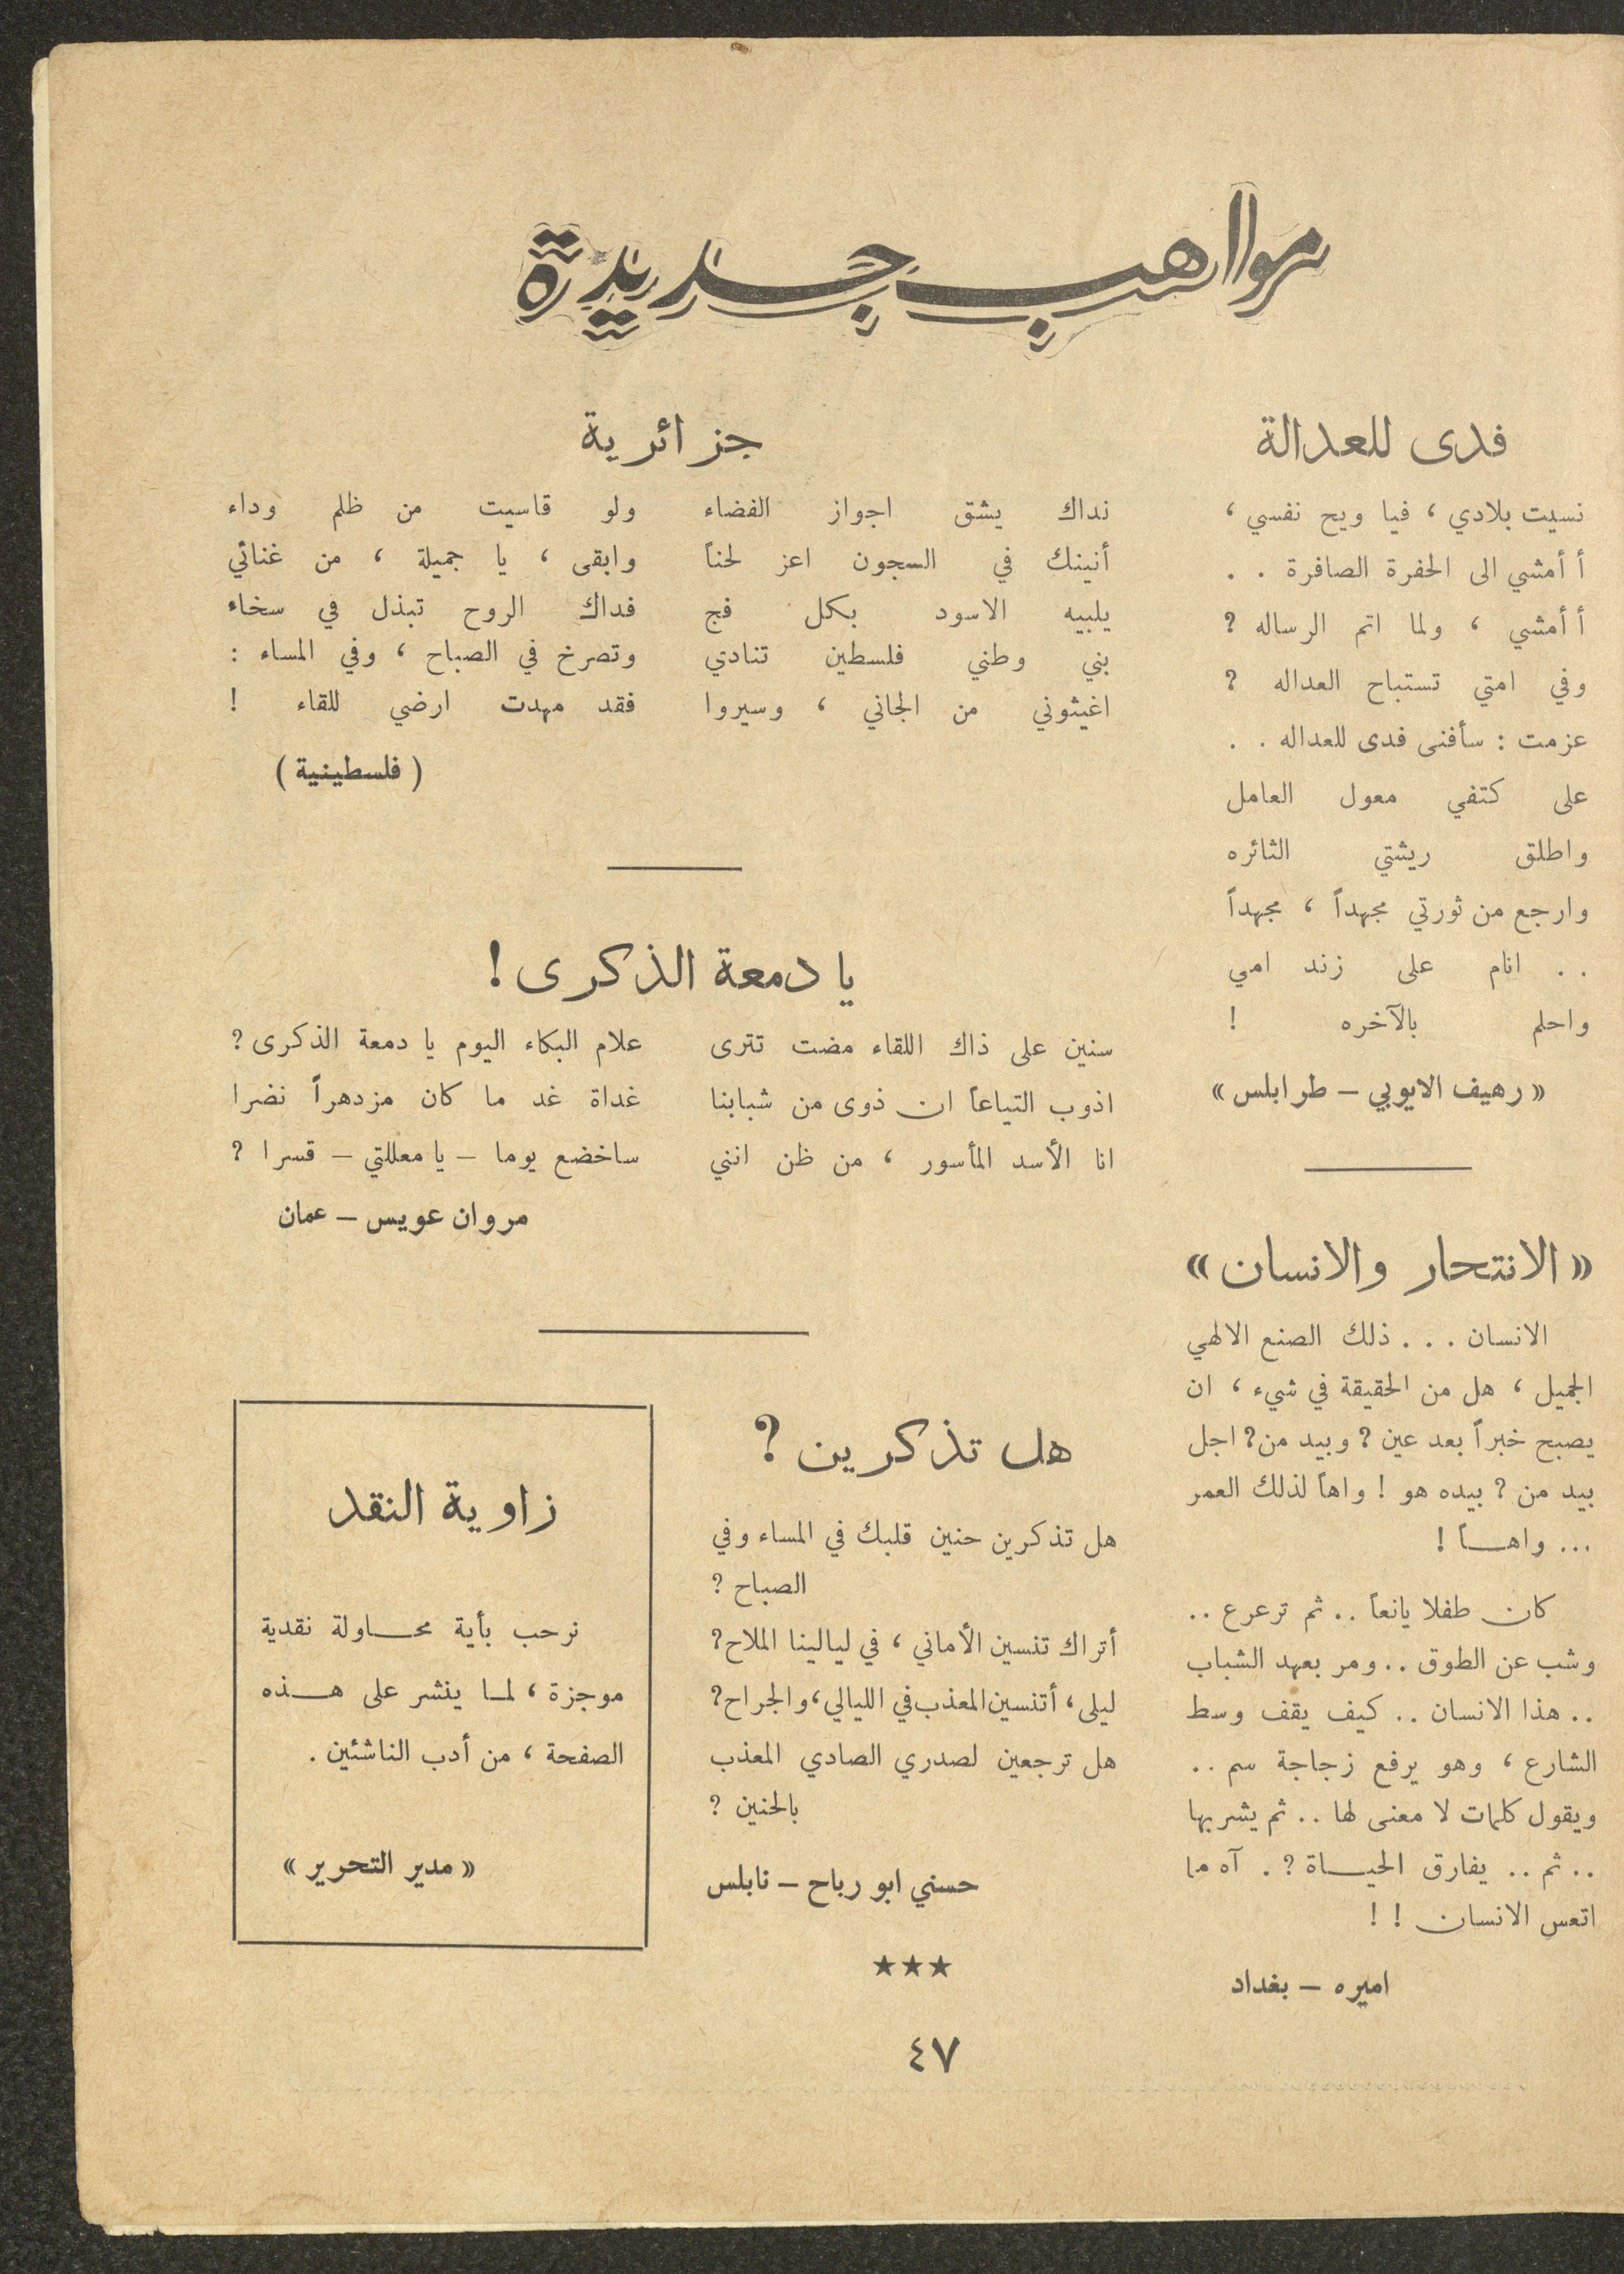 مواهب جديدة
فدى للعدالة
نسيت بلادي ، فيا ويح نفسي ،
أ أمشي الى الحفرة الصافرة . .
أ أمشي ، ولما اتم الرساله ?
وفي امتي تستباح العداله ?
عزمت : سأفنى فدى للعداله . .
على كتفي معول العامل
واطلق ريشتي الثائره
وارجع من ثورتي مجهداً ، مجهداً
. . انام على زند امي
واحلم بالآخره !
« رهيف الايوبي – طرابلس »
« الانتحار والانسان »
الانسان . . . ذلك الصنع الالهي
الجميل ، هل من الحقيقة في شيء ، ان
يصبح خبراً بعد عين ? وبيد من ? اجل
بيد من ? بيده هو ! واهاً لذلك العمر
... واهــاً !
كان طفلا يانعاً .. ثم ترعرع ..
وشب عن الطوق .. ومر بعهد الشباب
.. هذا الانسان .. كيف يقف وسط
الشارع ، وهو يرفع زجاجة سم ..
ويقول كلمات لا معنى لها .. ثم يشربها
.. ثم .. يفارق الحيــاة ? . آه ما
اتعس الانسان ! !
اميره – بغداد
جزائرية
نداك يشق اجواز الفضاء ولو قاسيت من ظلم وداء
أنينك في السجون اعز لحناً وابقى ، يا جميلة ، من غنائي
يلبيه الاسود بكل فج فداك الروح تبذل في سخاء
بني وطني فلسطين تنادي وتصرخ في الصباح ، وفي المساء :
اغيثوني من الجاني ، وسيروا فقد مهدت ارضي للقاء !
( فلسطينية )
يا دمعة الذكرى !
سنين على ذاك اللقاء مضت تترى علام البكاء اليوم يا دمعة الذكرى ?
اذوب التياعاً ان ذوى من شبابنا غداة غد ما كان مزدهراً نضرا
انا الأسد المأسور ، من ظن انني ساخضع يوما – يا معللتي – قسرا ?
مروان عويس – عمان
هل تذكرين ?
هل تذكرين حنين قلبك في المساء وفي
الصباح ?
أتراك تنسين الأماني ، في ليالينا الملاح ?
ليلى ، أتنسين المعذب في الليالي ، والجراح ?
هل ترجعين لصدري الصادي المعذب
بالحنين ?
حسني ابو رباح – نابلس
★★★
زاوية النقد
نرحب بأية محــاولة نقدية
موجزة ، لمـا ينشر على هــذه
الصفحة ، من أدب الناشئين .
« مدير التحرير »
٤٧